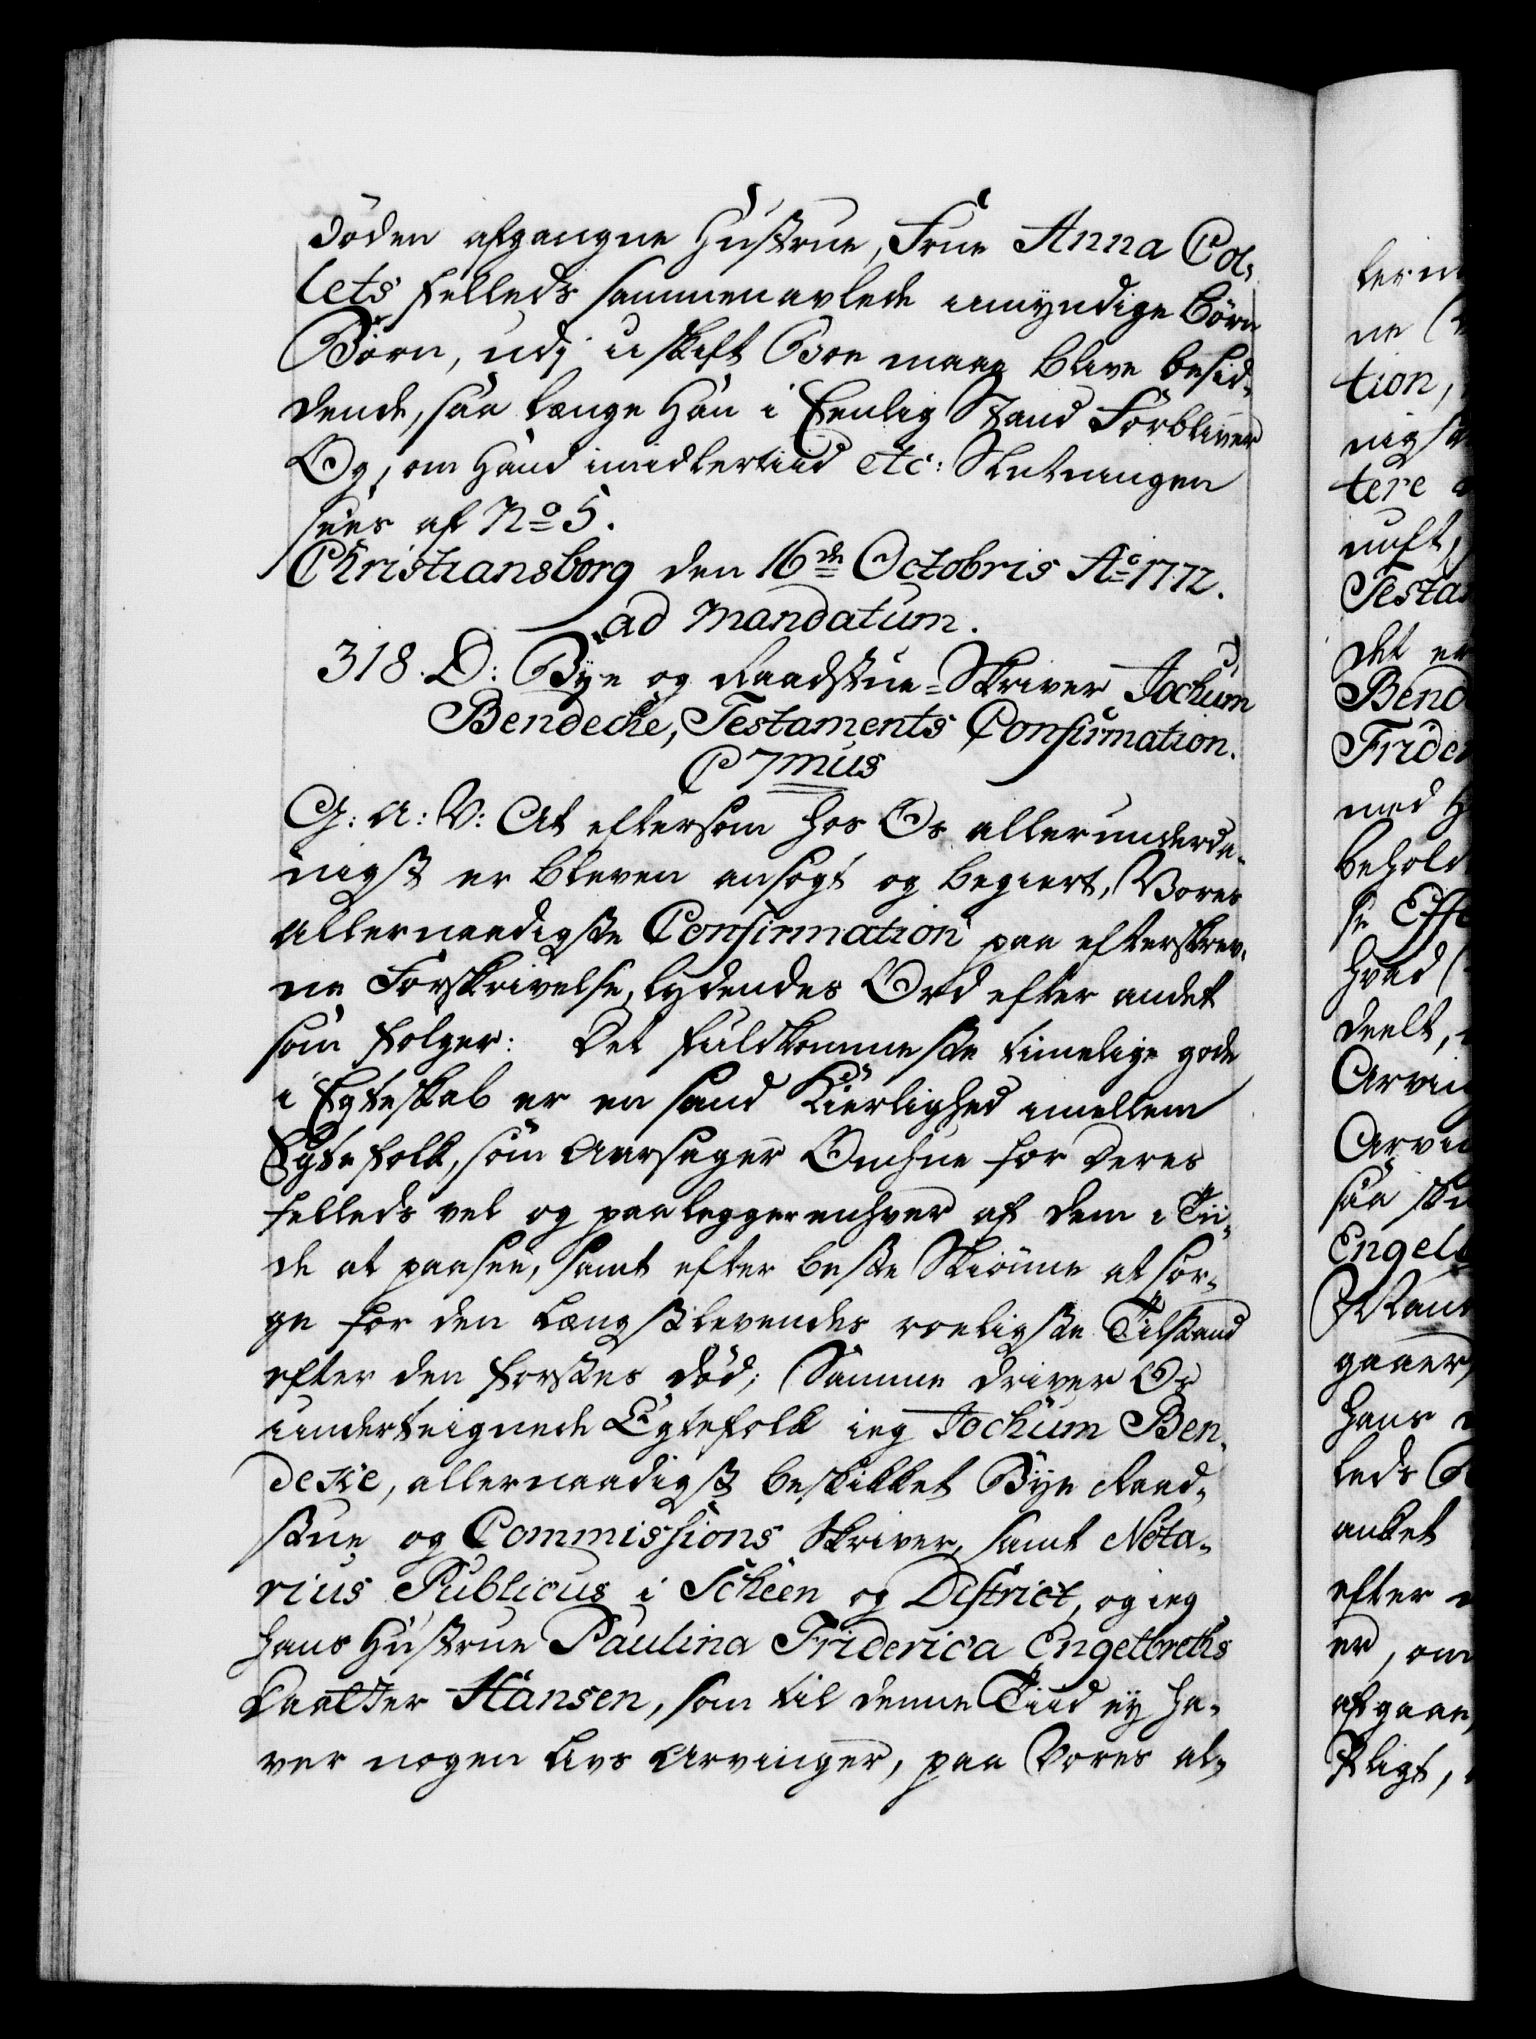 döden afgangne Hustrue, Frue Anna Col-
lets felleds sammenavlede umyndige Börn
Börn, udj uskift Boe maae blive besid-
dende, saa længe Han i Eenlig Stand Forbliver
Og, om Hand imidlertiid etc: Slutningen
sees af No 5.
Christiansborg den 16de Octobris Ao 1772.
ad Mandatum.
318. D: Bye og Raadstue-Skriver Jochum
Bendecke, Testaments Confirmation.
C 7mus
G: A: V: At eftersom hos Os allerunderda-
nigst er bleven ansögt og begiert, Vores
allernaadigste Confirmation paa efterskrev-
ne Forskrivelse, lydendes Ord efter andet
som fölger: Det fuldkommeste timelige gode
i Egteskab er en sand Kierlighed imellem
Egtefolk, som aarsager Omhue for deres
felleds vel og paalegger enhver af dem i Tii-
de at paasee, samt efter beste Skiönne at sor-
ge for den Længstlevendes roeligste Tilstand
efter den förstes död; Samme driver Os
underteignede Egtefolk ieg Jochum Ben-
deke, allernaadigst beskikket Bye Raad-
stue og Commissions Skriver, samt Nota-
rius Publicus i Scheen og District, og ieg
hans Hustrue Paulina Friderica Engelbreths
Daatter Hansen, som til denne Tiid ey ha-
ver nogen Livs Arvinger, paa Vores al-